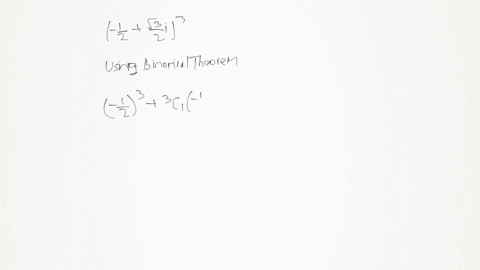 (-1/2 + √3/2 i)^3
Using Binomial Theorem
(-1/2)^3 + ³C₁(-1